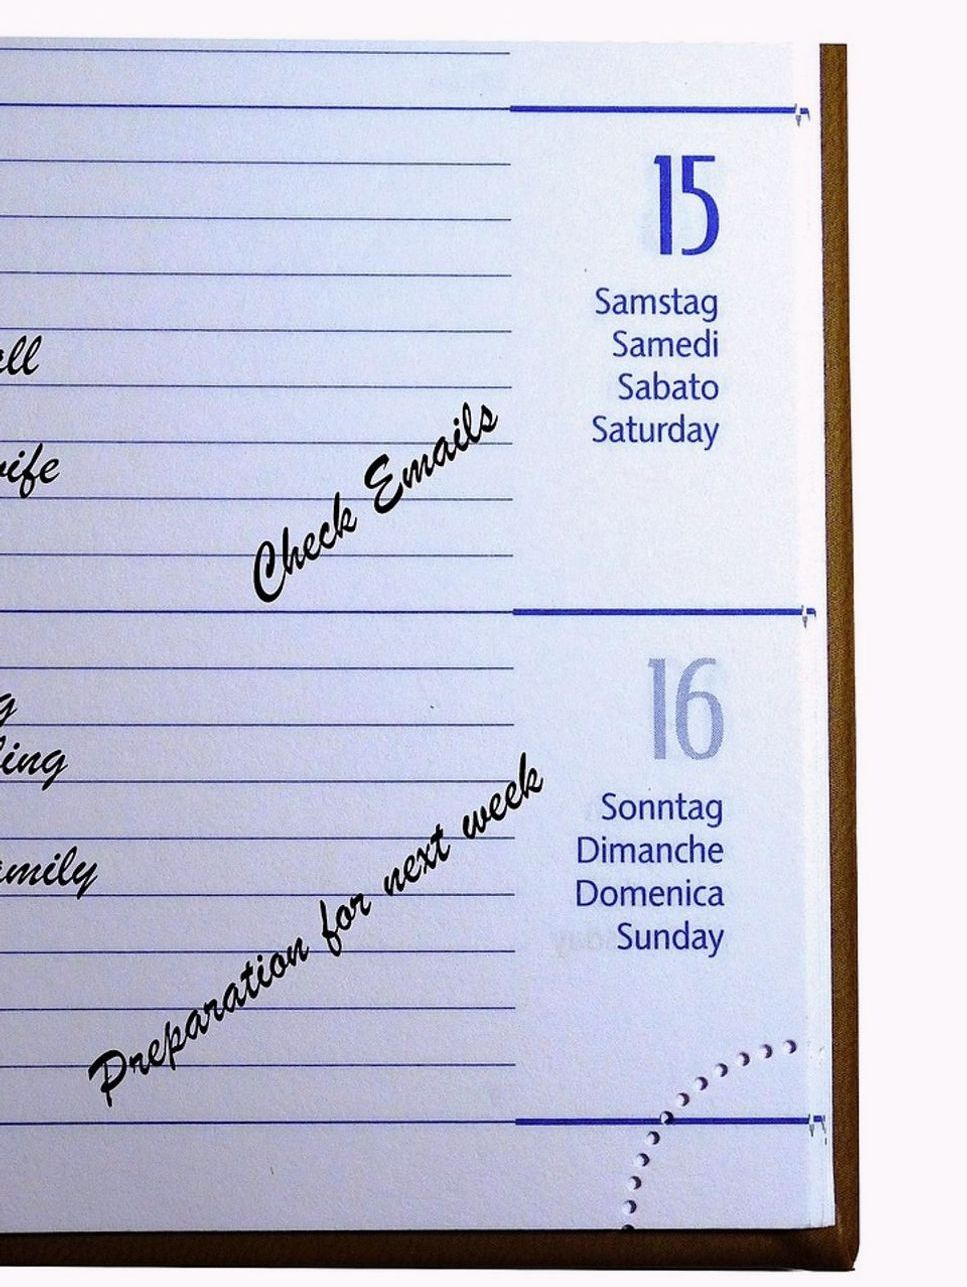 15
Samstag
Samedi
Sabato
Saturday
Check Emails
16
Sonntag
Dimanche
Domenica
Sunday
Preparation for next week